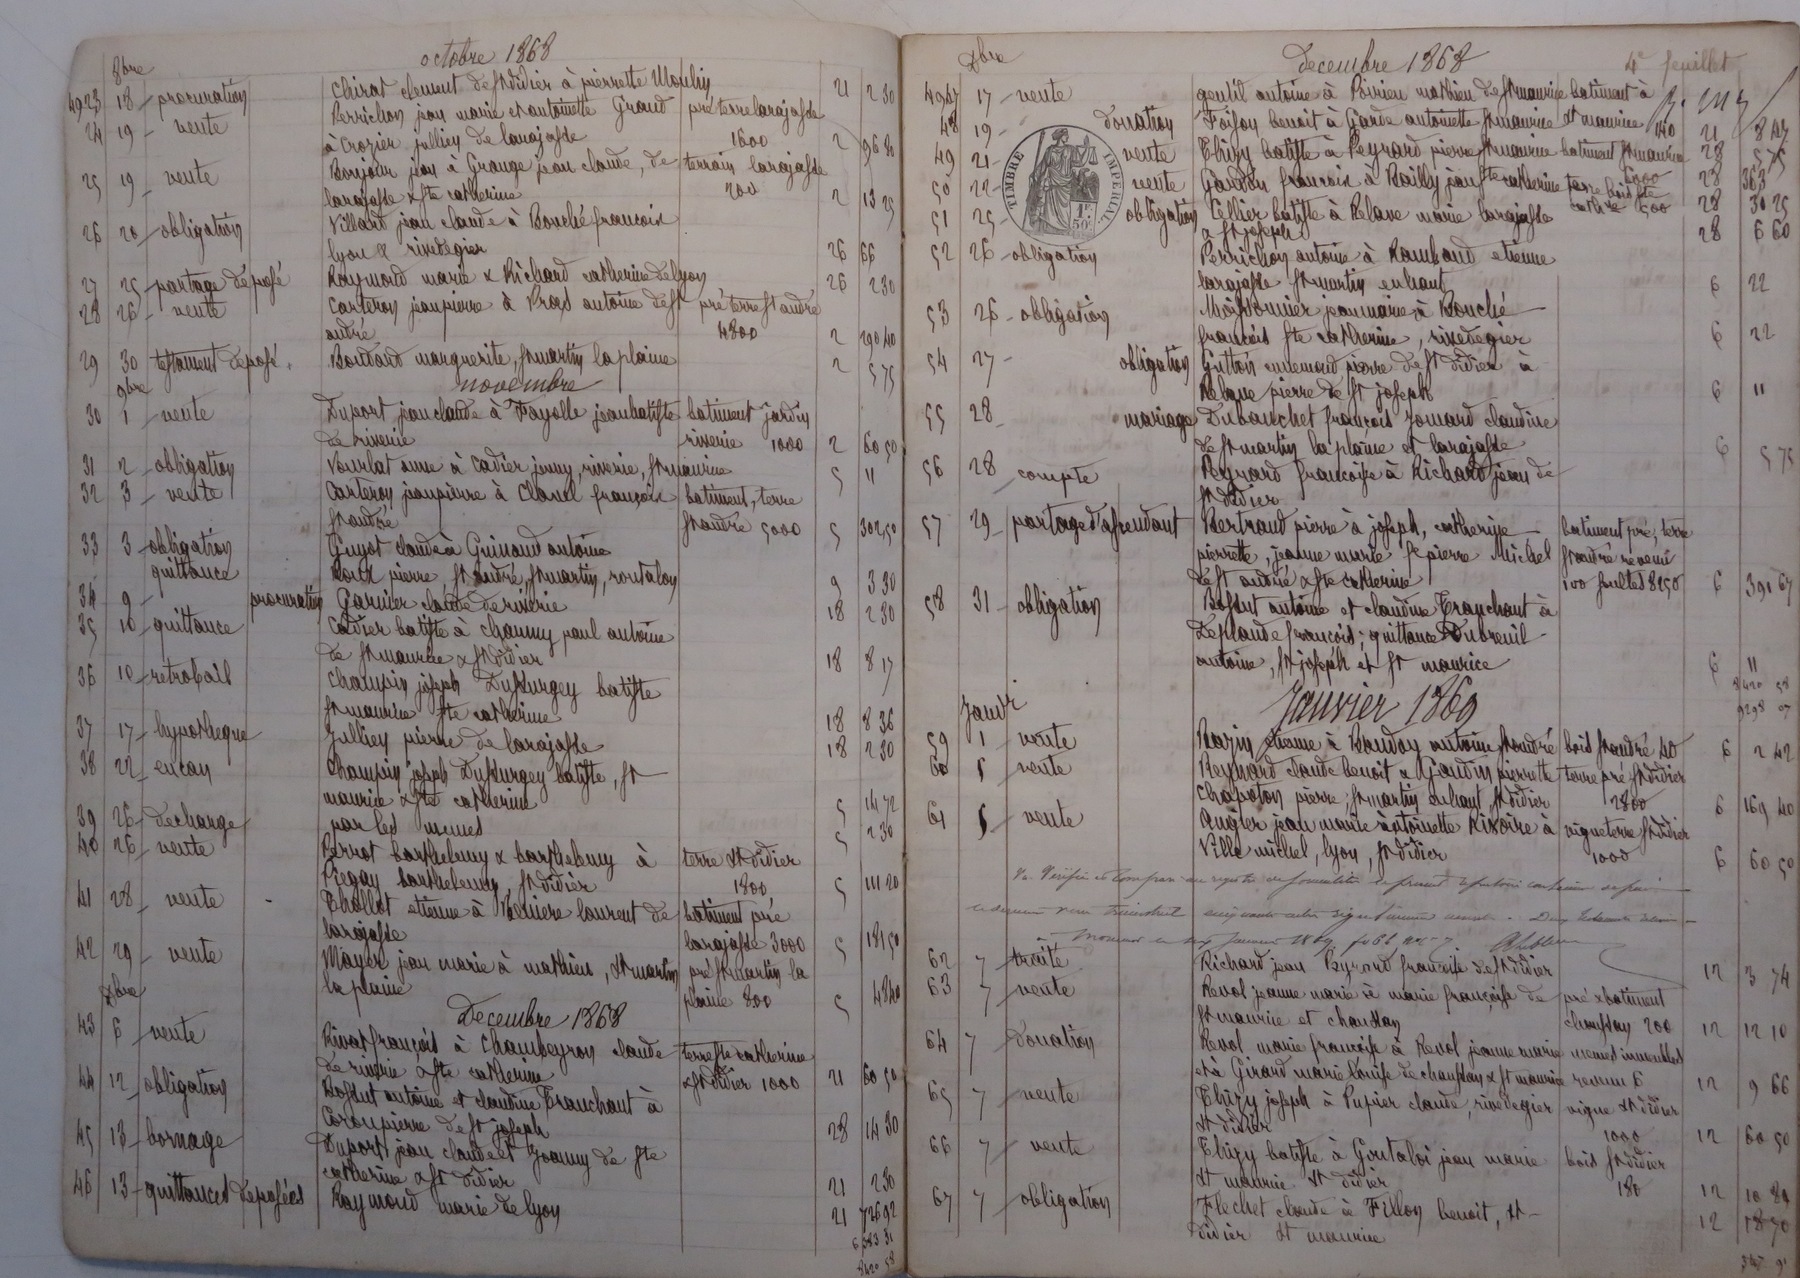 8bre octobre 1868
4923 18 procuration Chirat clement de St didier à pierrette Moulin 21 2 30
24 19 vente Perrichon jean marie et antoinette Giraud pré terre larajasse
à Crozier jullien de larajasse 1600 2 96 80
25 19 vente Bonjour jean à Grange jean claude, de terrain larajasse
larajasse & Ste catherine 200 2 13 25
26 20 obligation Villard jean claude à Bouché francois
lyon & rivedegier 26 66
27 25 partage déposé Raymond marie & Richard catherine de lyon 26 2 30
28 26 vente Carteron jean pierre à Pras antoine de St pré terre St andré
andré 4800 2 290 40
29 30 testament déposé. Boudard marguerite, St martin la plaine 2 5 75
9bre novembre
30 1 vente Duport jean claude à Fayolle jean batiste batiment jardin
de riverie riverie 1000 2 60 50
31 2 obligation Vourlat anne à Cadier jenny, riverie, St maurice 5 11
32 3 vente Carteron jean pierre à Clavel françois batiment, terre
St andré St andré 5000 5 302 50
33 3 obligation Guyot claude à Guinand antoine
quittance Roux pierre, St andré, St martin, rontalon 9 3 30
34 9 procuration Garnier claude de riverie 18 2 30
35 10 quittance Cadier batiste à Chaumy paul antoine
de St maurice & St didier 18 8 17
36 10 retrobail Champin joseph Dussurgey batiste
St maurice Ste catherine 18 8 36
37 17 hypotheque Jullien pierre de larajasse 18 2 30
38 22 encan Champin joseph Dussurgey batiste, St
maurice & Ste catherine 5 14 72
39 26 decharge par les memes 5 2 30
40 26 vente Perrot barthelemy & barthelemy à terre St didier
Piegay barthelemy, St didier 1800 5 111 20
41 28 vente Thollot etienne à Verriere laurent de batiment pré
larajasse larajasse 3000 5 181 50
42 29 vente Mayer jean marie à mathieu, St martin pré St martin la
la plaine plaine 800 5 48 40
xbre Decembre 1868
43 6 vente Rivat françois à Chambeyron claude terre Ste catherine
de riverie & Ste catherine & St didier 1000 21 60 50
44 12 obligation Bossut antoine et claudine Tranchant à
Coron pierre de St joseph 28 14 30
45 13 bornage Duport jean claude et Joanny de Ste
catherine & St didier 21 2 30
46 13 quittances déposées Raymond marie de lyon 21 726 92
6383 31
8420 58
xbre Decembre 1868 4e feuillet
4947 17 vente gentil antoine à Poirieu mathieu de St maurice batiment à
48 19 donation Foison benoit à Garde antoinette St maurice St maurice 140 21 8 47
49 21 vente Thizy batiste à Peyrard pierre St maurice batiment St maurice 28 5 75
50 22 vente Goudon francois à Bailly jean Ste catherine terre bois Ste 28 363
cathne 500 28 30 25
TIMBRE IMPERIAL
51 25 obligation Cellier batiste à Relave marie larajasse
& St joseph 28 6 60
52 26 obligation Perrichon antoine à Rambaud etienne
larajasse St martin en haut 6 22
53 26 obligation Maisonnier jean marie à Bouché
francois Ste catherine, rivedegier 6 22
54 27 obligation Gutton ennemond pierre de St didier à
Relave pierre de St joseph 6 11
55 28 mariage Dubouchet françois Jomard claudine
de St martin la plaine et larajasse 6 5 75
56 28 compte Peyrard francoise à Richard jean de
St didier
57 29 partage d'ascendant Bertraud pierre à joseph, catherine batiment pré, terre
pierrette, jeanne marie & pierre Michel St andré revenu
de St andré & Ste catherine 6 391 67
58 31 obligation Bossut antoine et claudine Tranchant à
Deplaude francois; quittance Dubreuil
antoine, St joseph et St maurice 6 11
8420 58
9298 07
Janvr Janvier 1869
59 1 vente Bazin etienne à Bouday antoine St andré bois St andré 40 6 2 42
60 5 vente Peyrard claude benoit & Goudin pierrette terre pré St didier
Chapoton pierre, St martin en haut, St didier 2800 6 169 40
61 5 vente Angler jean marie antoinette Rivoire à vigne terre St didier
Ville michel, lyon, St didier 1000 6 60 50
62 7 traité Richard jean Peyrard francoise de St didier 12 3 74
63 7 vente Revol jeanne marie à marie françoise de pré & batiment
St maurice et chaussan chaussan 200 12 12 10
64 7 donation Revol marie francoise à Revol jeanne marie memes immeubles
et à Girard marie louise de chaussan & St maurice revenu 6 12 9 66
65 7 vente Thizy joseph à Pupier claude, rivedegier vigne St didier
St didier 1000 12 60 50
66 7 vente Thizy batiste à Goutaloi jean marie bois St didier
St maurice St didier 180 12 10 89
67 7 obligation Flechet claude à Fillon benoit, St 12 18 70
didier St maurice